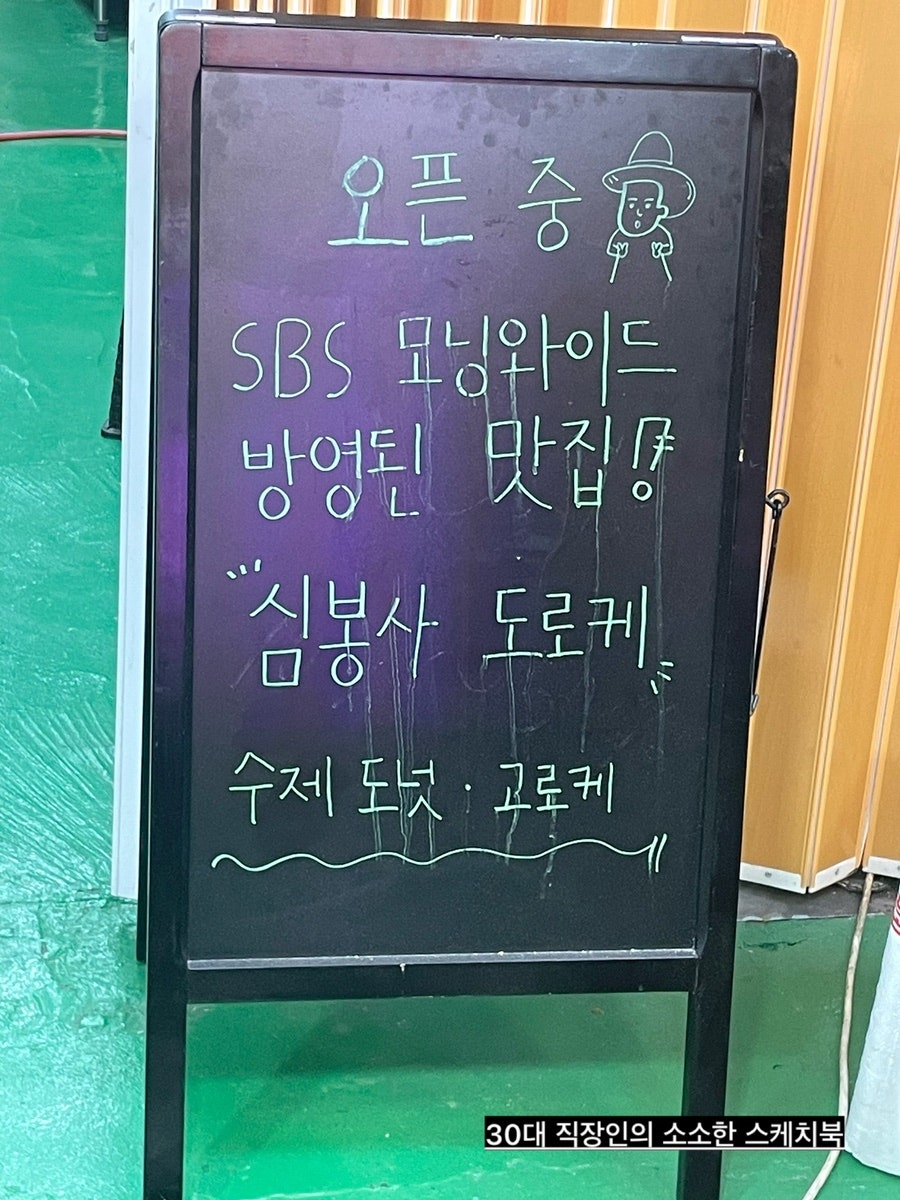 오픈 중
SBS 모닝와이드
방영된 맛집!
심봉사 도로케
수제 도넛·고로케
30대 직장인의 소소한 스케치북